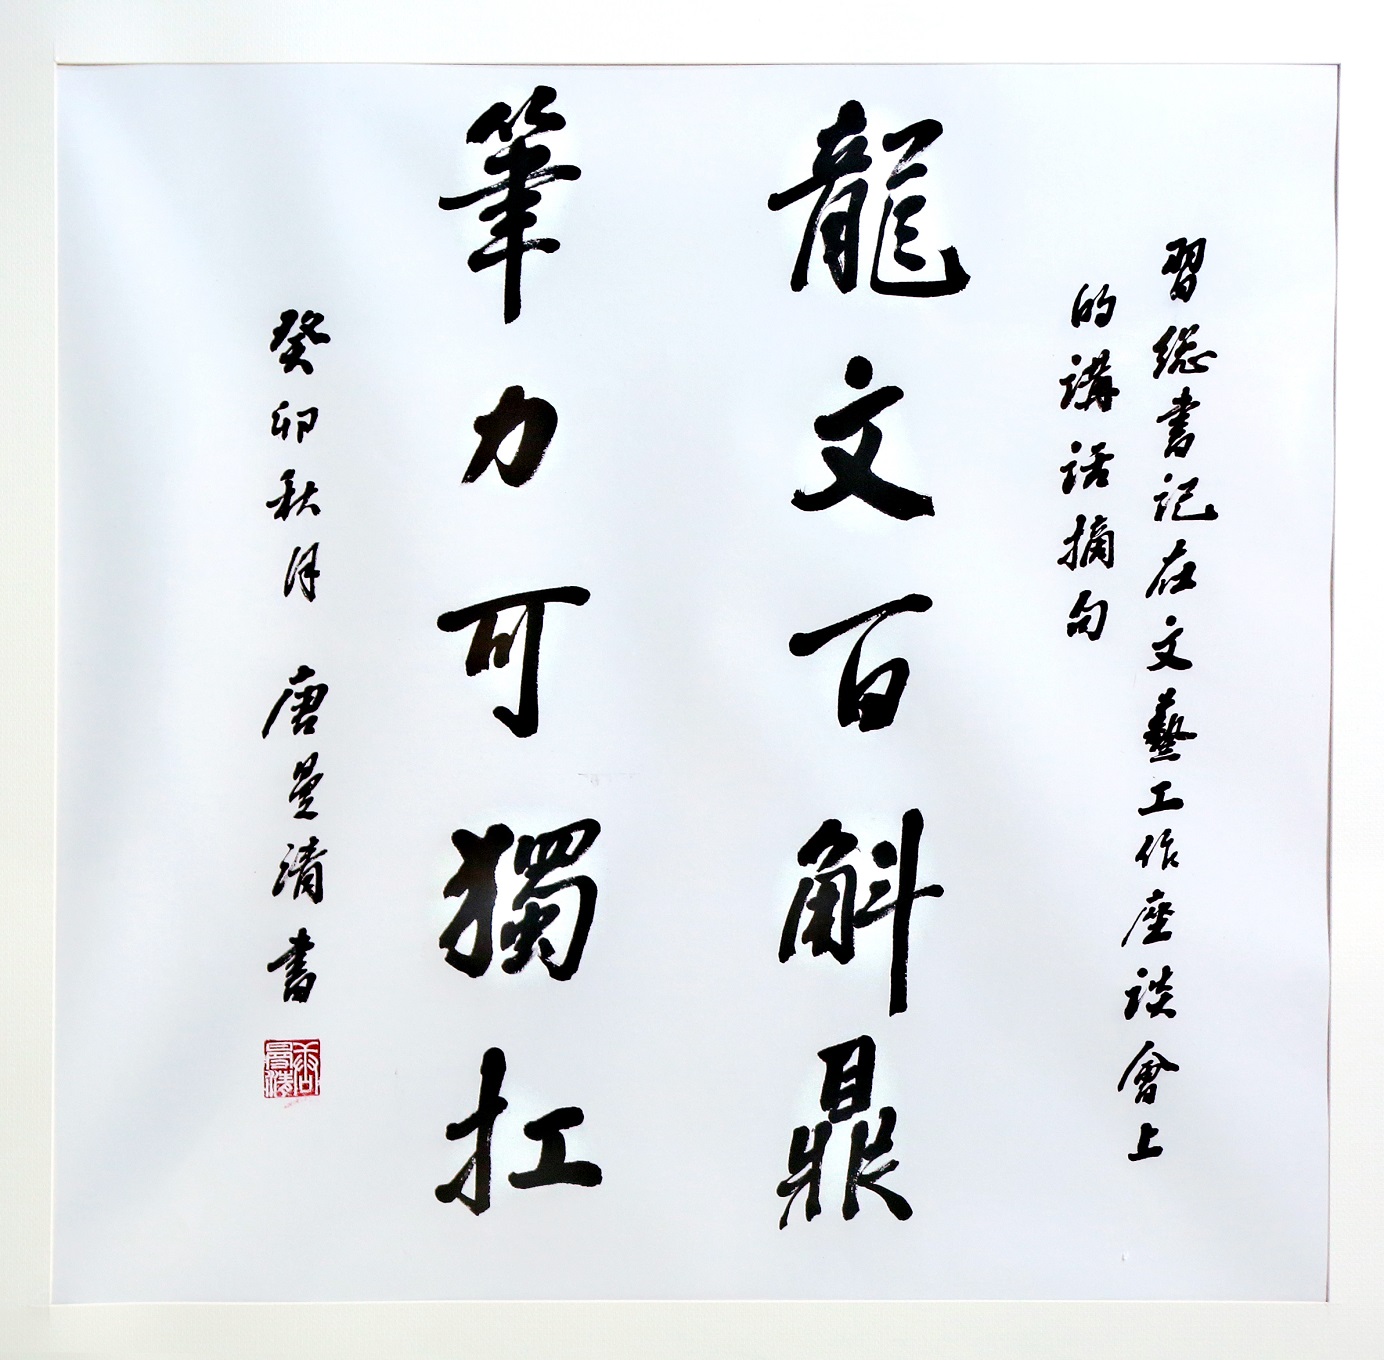 習總書記在文藝工作座談會上
的講話摘句
龍文百斛鼎
筆力可獨扛
癸卯秋月 唐曼清書
唐曼清